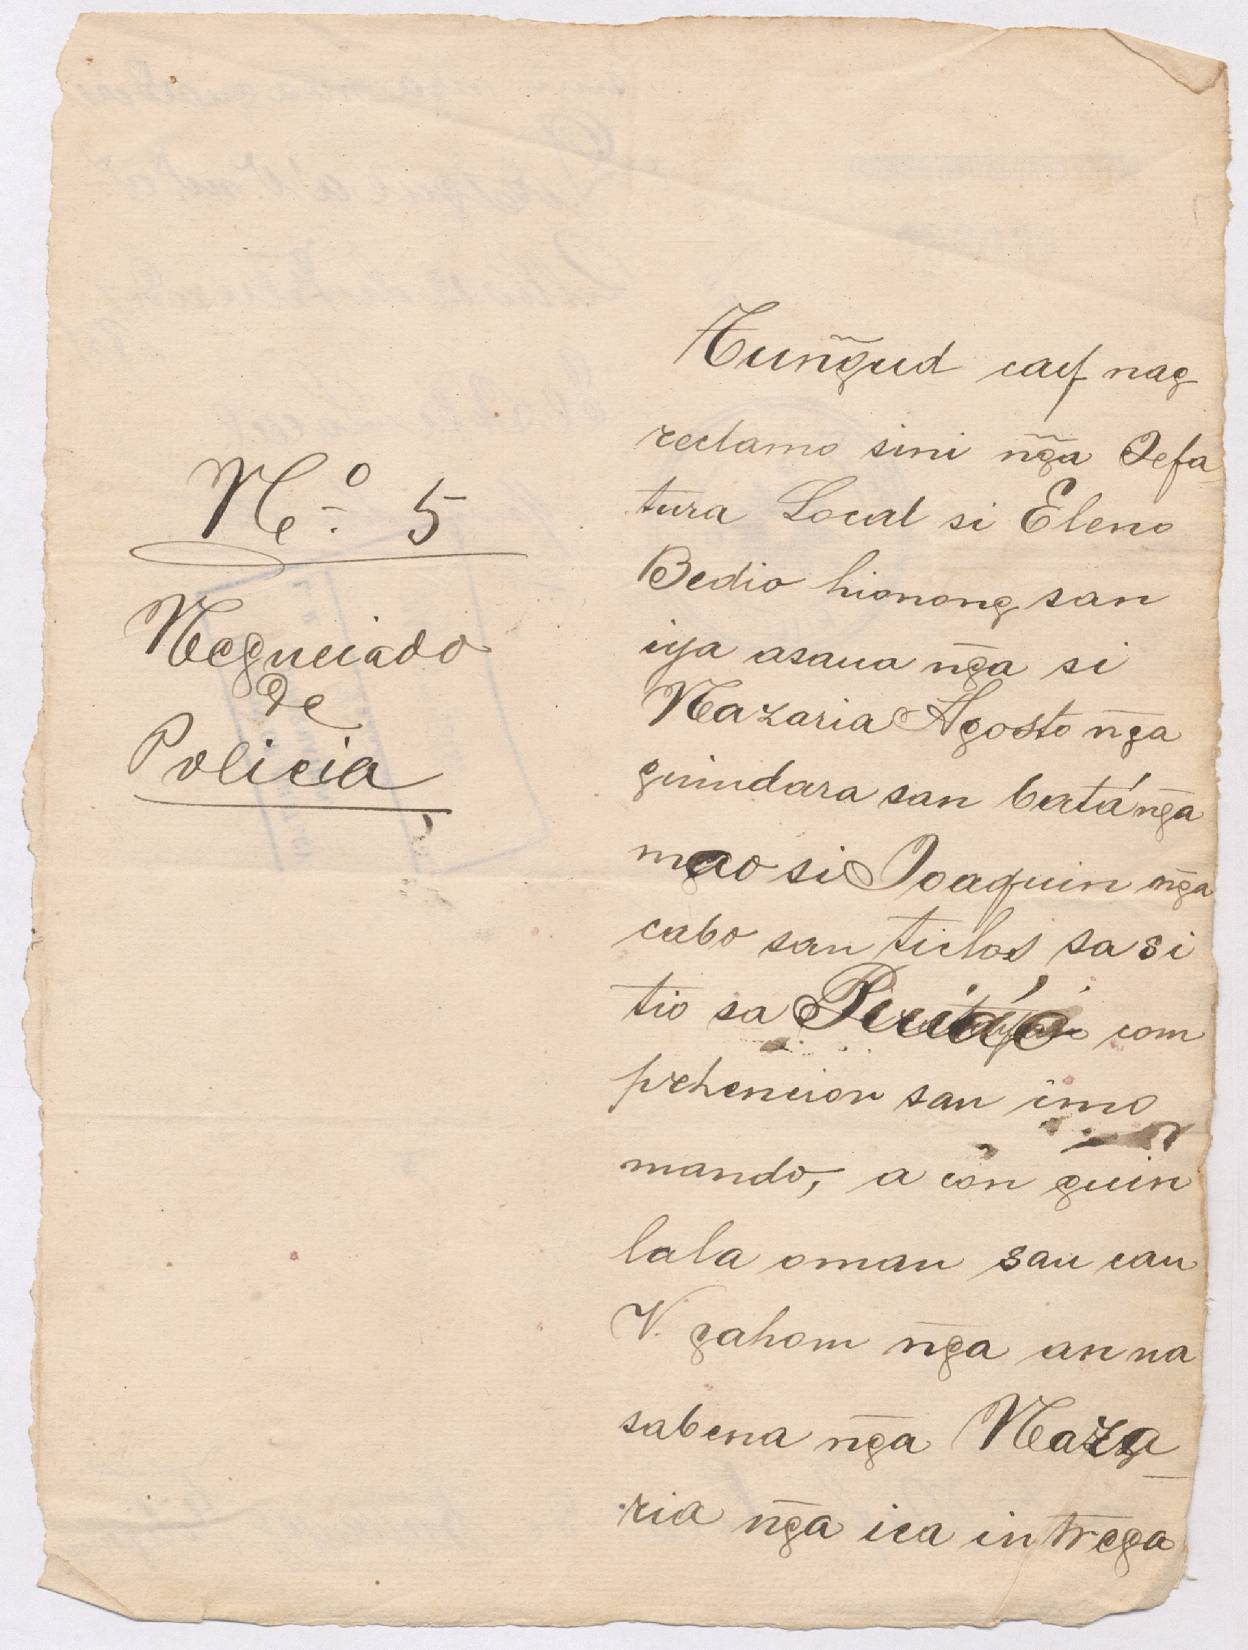 N.º 5
Neguciado
de
Policia
Tuñgud cay nag
reclamo sini ñga Jefa
tura Local si Eleno
Bedio hionong san
iya asaua ñga si
Nazaria Agosto ñga
guindara san batá ñga
mao si Joaquin ñga
cabo san ticlos sa si
tio sa com
prehencion san imo
mando, a con guin
lala oman san can
V. gahom ñga an na
sabena ñga Naza
ria ñga ica intrega